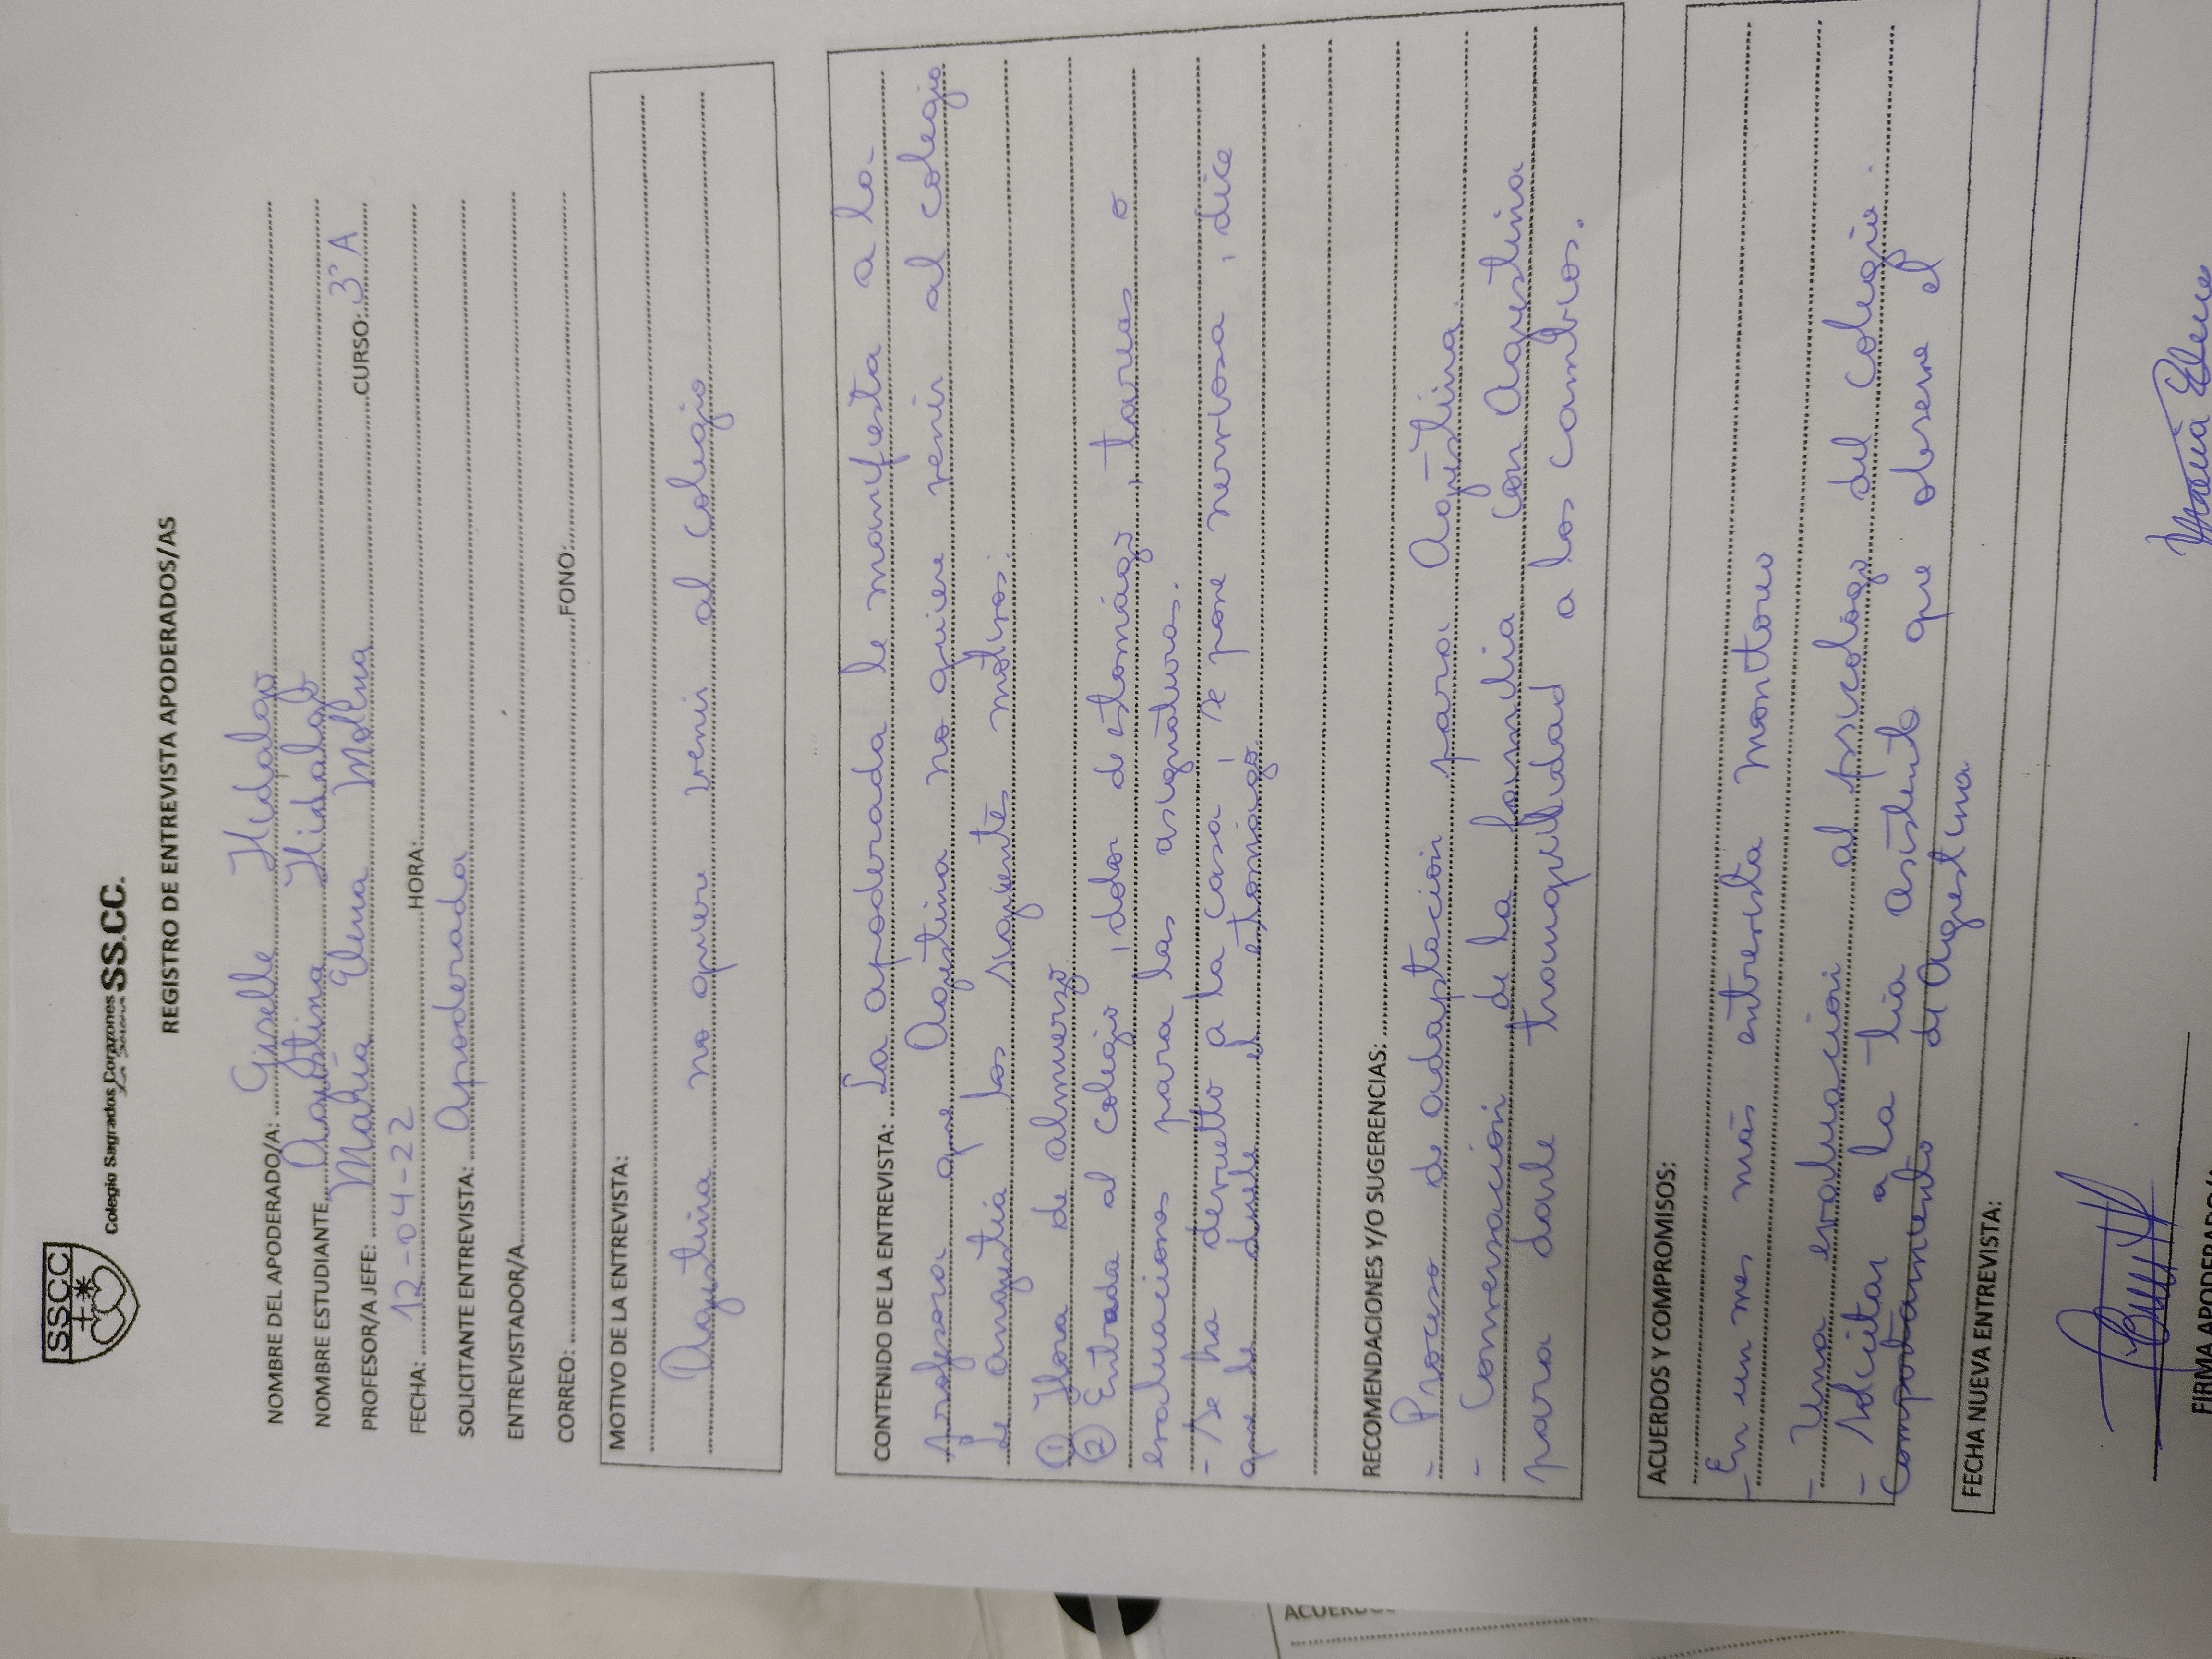 SSCC
Colegio Sagrados Corazones SS.CC.
REGISTRO DE ENTREVISTA APODERADOS/AS
NOMBRE DEL APODERADO/A: Giselle Hidalgo
NOMBRE ESTUDIANTE Agustina Hidalgo
PROFESOR/A JEFE: María Elena Molina CURSO: 3°A
FECHA: 12-04-22 HORA:
SOLICITANTE ENTREVISTA: Apoderada
ENTREVISTADOR/A
CORREO: FONO:
MOTIVO DE LA ENTREVISTA:
Agustina no quiere venir al colegio
CONTENIDO DE LA ENTREVISTA: La apoderada le manifiesta a la
profesora que Agustina no quiere venir al colegio
le angustia los siguiente motivos:
① Hora de almuerzo
② Entrada al colegio, dolor de estómago, tareas o
evaluaciones para las asignaturas.
- Se ha devuelto a la casa, se pone nerviosa, dice
que le duele el estómago
RECOMENDACIONES Y/O SUGERENCIAS:
- Proceso de adaptación para Agustina
- Conversación de la familia con Agustina
para darle tranquilidad a los cambios.
ACUERDOS Y COMPROMISOS:
- En un mes más entrevista monitoreo
- Una evaluación al psicólogo del colegio.
- Solicitar a la tía asistente que observe el
Comportamiento de Agustina
FECHA NUEVA ENTREVISTA:
María Elena
FIRMA APODERADO/A
ACUERDOS